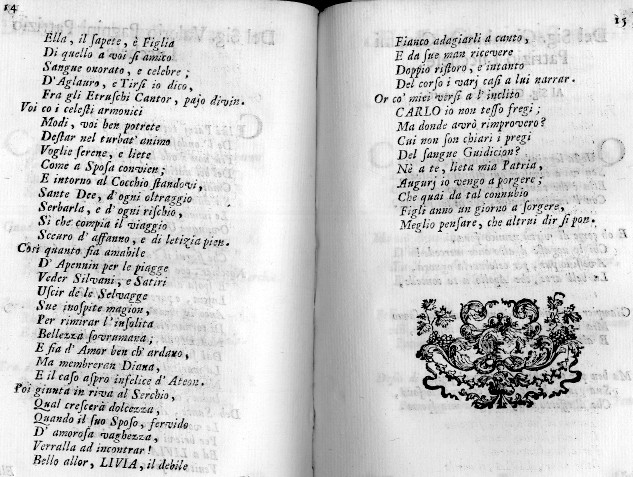 14
Ella, il sapete, è Figlia
Di quello a voi sì amico
Sangue onorato, e celebre;
D'Aglauro, e Tirsi io dico,
Fra gli Etruschi Cantor, pajo divin.
Voi co i celesti armonici
Modi, voi ben potrete
Destar nel turbat' animo
Voglie serene, e liete
Come a Sposa convien;
E intorno al Cocchio standovi,
Sante Dee, d'ogni oltraggio
Serbarla, e d'ogni rischio,
Sì che compia il viaggio
Scevro d'affanno, e di letizia pien.
Così quanto fia amabile
D' Apennin per le piagge
Veder Silvani, e Satiri
Uscir de le Selvagge
Sue inospite magion,
Per rimirar l'insolita
Bellezza sovrumana;
E fia d'Amor ben ch' ardano,
Ma membreran Diana,
E il caso aspro infelice d' Ateon.
Poi giunta in riva al Serchio,
Qual crescerà dolcezza,
Quando il suo Sposo, fervido
D' amorosa vaghezza,
Verralla ad incontrar!
Bello allor, LIVIA, il debile
15
Fianco adagiarli a canto,
E da sue man ricevere
Doppio ristoro, e intanto
Del corso i varj casi a lui narrar.
Or co' miei versi a l'inclito
CARLO io non tesso fregi;
Ma donde avrò rimprovero?
Cui non son chiari i pregi
Del sangue Guidicion?
Nè a te, lieta mia Patria,
Augurj io vengo a porgere;
Che quai da tal connubio
Figli anno un giorno a sorgere,
Meglio pensare, che altrui dir si pon.